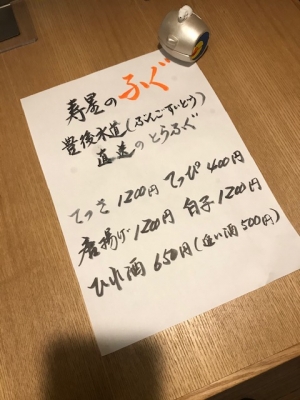 寿星のふぐ
豊後水道(ぶんごすいどう)
直送のとらふぐ
てっさ 1200円 てっぴ 400円
唐揚げ 1200円 白子 1200円
ひれ酒 650円(追い酒500円)